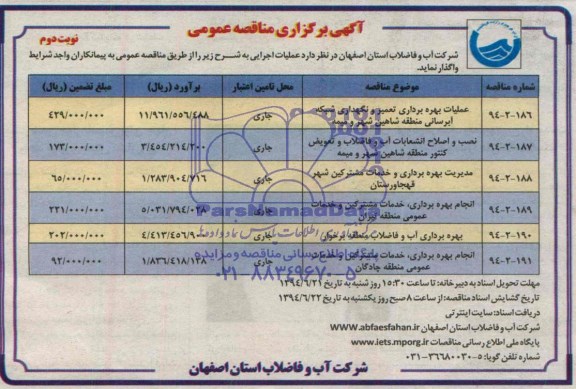 آگهی برگزاری مناقصه عمومی
نوبت دوم
شرکت آب و فاضلاب استان اصفهان در نظر دارد عملیات اجرایی به شرح زیر را از طریق مناقصه عمومی به پیمانکاران واجد شرایط
واگذار نماید.
شماره مناقصه موضوع مناقصه محل تامین اعتبار برآورد (ریال) مبلغ تضمین (ریال)
۹۴-۲-۱۸۶ عملیات بهره برداری تعمیر و نگهداری شبکه آبرسانی منطقه شاهین شهر و میمه جاری ۱۱/۹۶۱/۵۵۶/۴۸۸ ۴۲۹/۰۰۰/۰۰۰
۹۴-۲-۱۸۷ نصب و اصلاح انشعابات آب و فاضلاب و تعویض کنتور منطقه شاهین شهر و میمه جاری ۳/۴۵۴/۲۱۴/۲۰۰ ۱۷۳/۰۰۰/۰۰۰
۹۴-۲-۱۸۸ مدیریت بهره برداری و خدمات مشترکین شهر قهجاورستان جاری ۱/۲۸۳/۹۰۴/۷۱۶ ۶۵/۰۰۰/۰۰۰
۹۴-۲-۱۸۹ انجام بهره برداری، خدمات مشترکین و خدمات عمومی منطقه جاری ۵/۰۳۱/۷۹۴/۰۲۸ ۲۲۱/۰۰۰/۰۰۰
۹۴-۲-۱۹۰ بهره برداری آب و فاضلاب منطقه برخوار جاری ۲۰۲/۰۰۰/۰۰۰
۹۴-۲-۱۹۱ انجام بهره برداری، خدمات مشترکین و خدمات عمومی منطقه چادگان جاری ۱/۸۳۶/۴۱۸/۱۳۸ ۹۲/۰۰۰/۰۰۰
ParsNamadData
پایگاه اطلاع رسانی مناقصه و مزایده
۰۲۱-۸۸۳۴۹۶۷۰-۵
مهلت تحویل اسناد به دبیرخانه: تا ساعت ۱۵:۳۰ روز شنبه به تاریخ ۱۳۹۴/۶/۲۱
تاریخ گشایش اسناد مناقصه: از ساعت ۸ صبح روز یکشنبه به تاریخ ۱۳۹۴/۶/۲۲
دریافت اسناد: سایت اینترنتی
شرکت آب و فاضلاب استان اصفهان www.abfaesfahan.ir
پایگاه ملی اطلاع رسانی مناقصات www.iets.mporg.ir
شماره تلفن گویا: ۵-۳۶۶۸۰۰۳۰-۰۳۱
شرکت آب و فاضلاب استان اصفهان